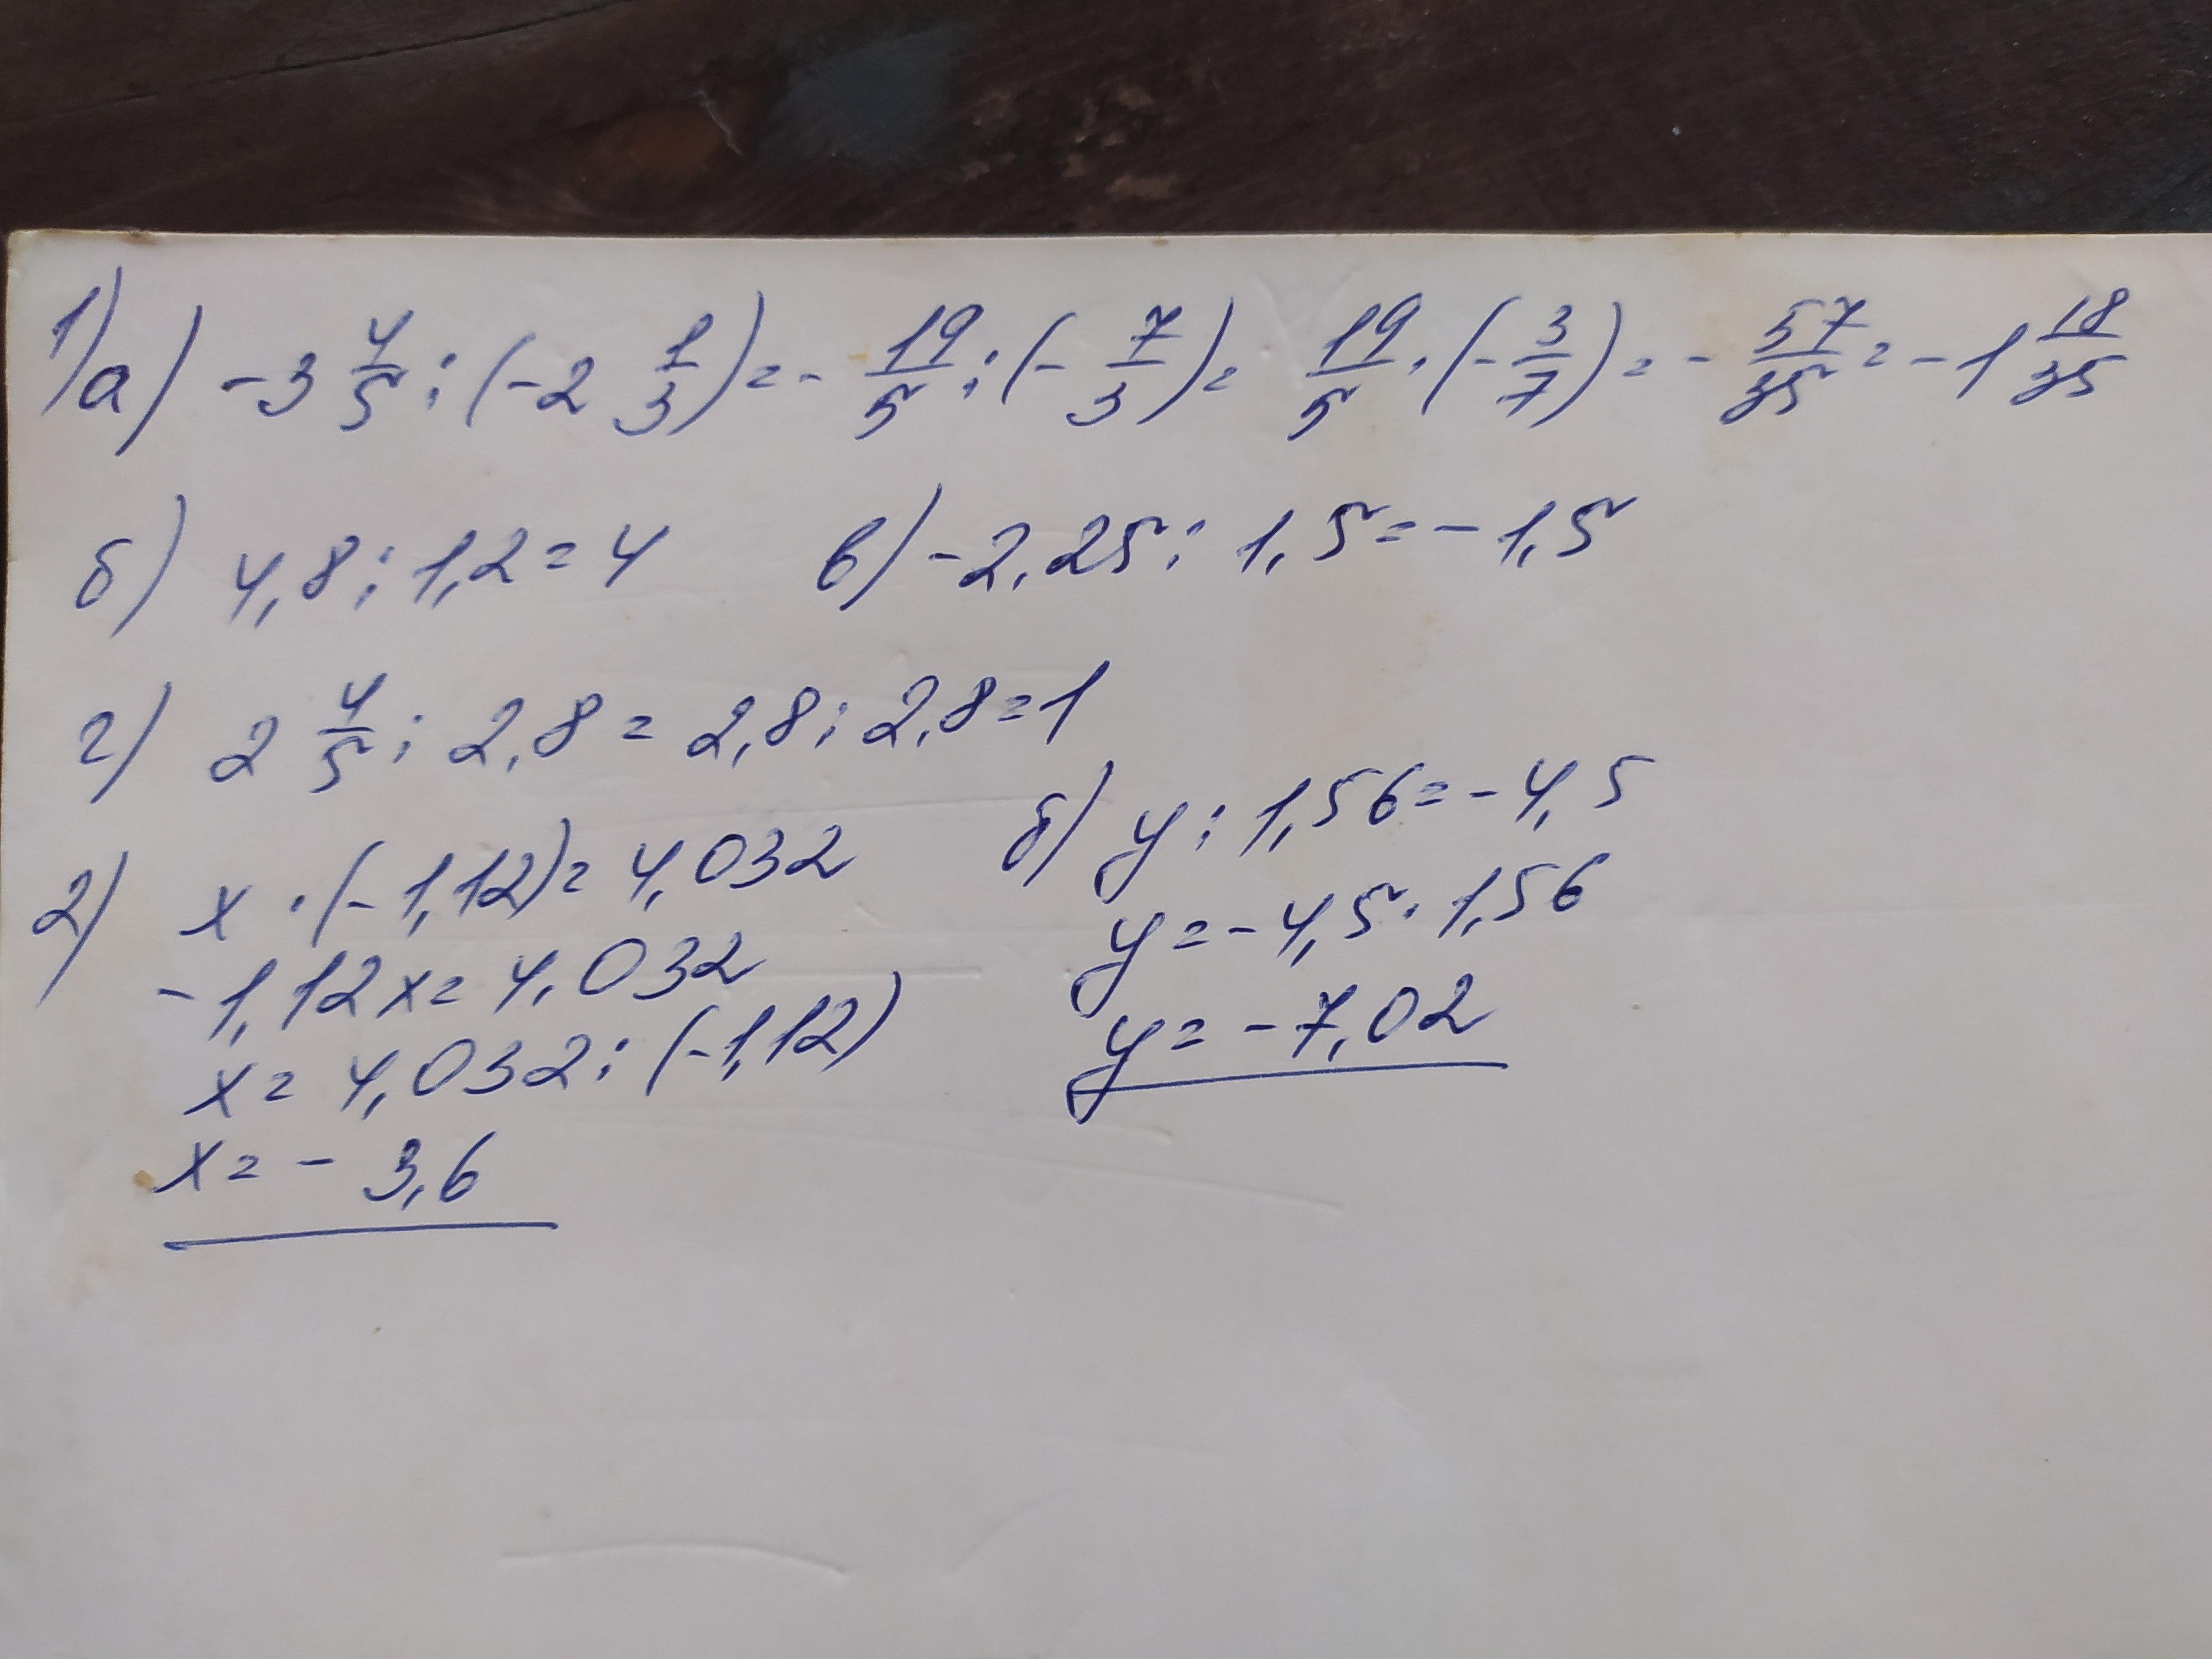 1) а) -3 4/5 : (-2 1/3) = - 19/5 : (- 7/3) = 19/5 · (- 3/7) = - 57/35 = -1 18/35
б) 4,8 : 1,2 = 4 в) -2,25 : 1,5 = -1,5
г) 2 4/5 : 2,8 = 2,8 : 2,8 = 1
2) x · (-1,12) = 4,032
-1,12x = 4,032
x = 4,032 : (-1,12)
x = - 3,6
б) y : 1,56 = -4,5
y = -4,5 · 1,56
y = -7,02